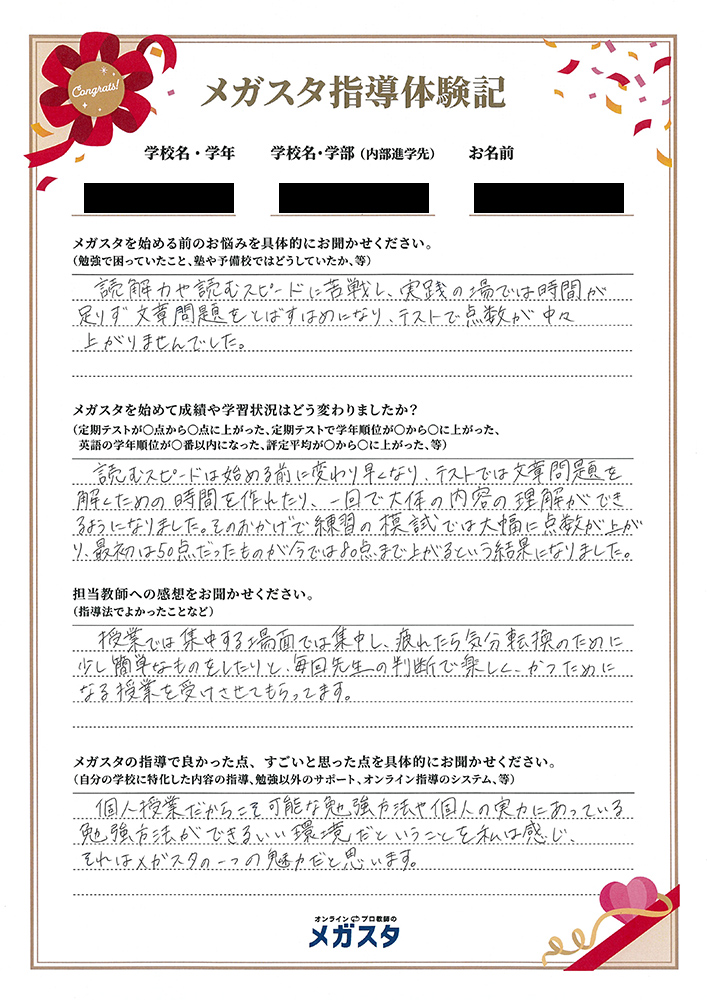 Congrats!
メガスタ指導体験記
学校名・学年 学校名・学部（内部進学先） お名前
メガスタを始める前のお悩みを具体的にお聞かせください。
（勉強で困っていたこと、塾や予備校ではどうしていたか、等）
読解力や読むスピードに苦戦し、実践の場では時間が
足りず文章問題をとばすはめになり、テストで点数が中々
上がりませんでした。
メガスタを始めて成績や学習状況はどう変わりましたか？
（定期テストが〇点から〇点に上がった、定期テストで学年順位が〇から〇に上がった、
英語の学年順位が〇番以内になった、評定平均が〇から〇に上がった、等）
読むスピードは始める前に変わり早くなり、テストでは文章問題を
解くための時間を作れたり、一回で大体の内容の理解ができ
るようになりました。そのおかげで練習の模試では大幅に点数が上が
り、最初は50点だったものが今では80点まで上がるという結果になりました。
担当教師への感想をお聞かせください。
（指導法でよかったことなど）
授業では集中する場面では集中し、疲れたら気分転換のために
少し簡単なものをしたりと、毎回先生の判断で楽しく、かつために
なる授業を受けさせてもらってます。
メガスタの指導で良かった点、すごいと思った点を具体的にお聞かせください。
（自分の学校に特化した内容の指導、勉強以外のサポート、オンライン指導のシステム、等）
個人授業だからこそ可能な勉強方法や個人の実力にあっている
勉強方法ができるいい環境だということを私は感じ、
それはメガスタの一つの魅力だと思います。
オンラインプロ教師の
メガスタ